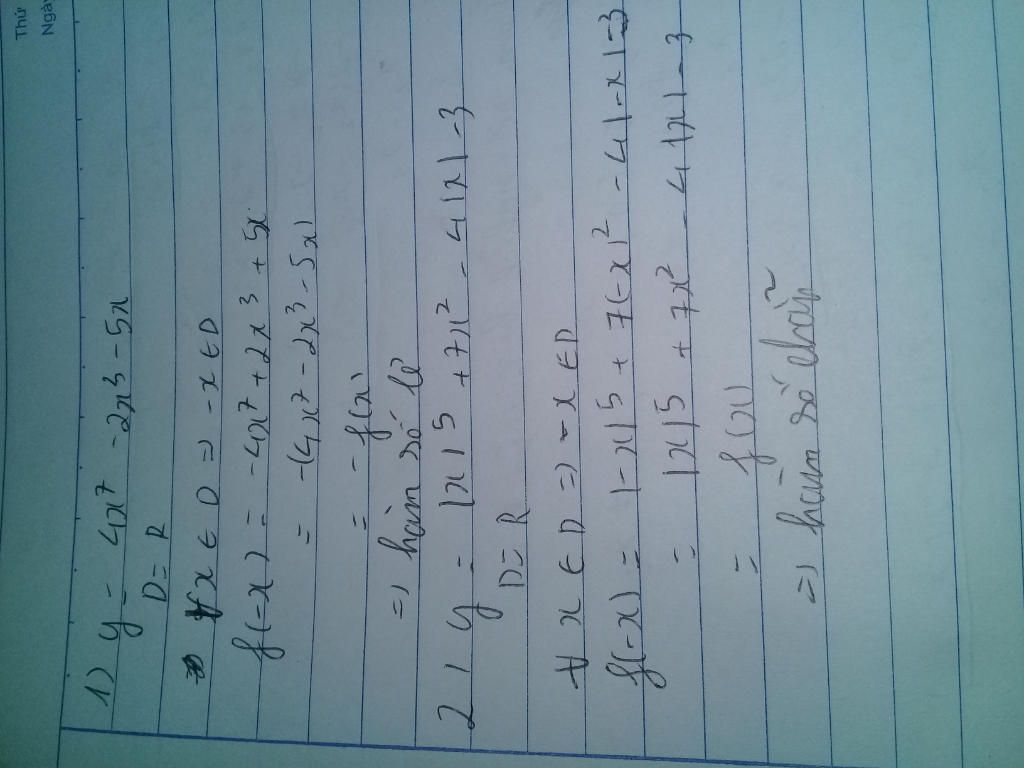 Thứ
Ngày
1) y = 4x⁷ - 2x³ - 5x
D = R
∀x ∈ D => -x ∈ D
f(-x) = -4x⁷ + 2x³ + 5x
= -(4x⁷ - 2x³ - 5x)
= - f(x)
=> hàm số lẻ
2) y = |x|5 + 7x² - 4|x| - 3
D = R
∀ x ∈ D => -x ∈ D
f(-x) = |-x|5 + 7(-x)² - 4|-x| - 3
= |x|5 + 7x² - 4|x| - 3
= f(x)
=> hàm số chẵn